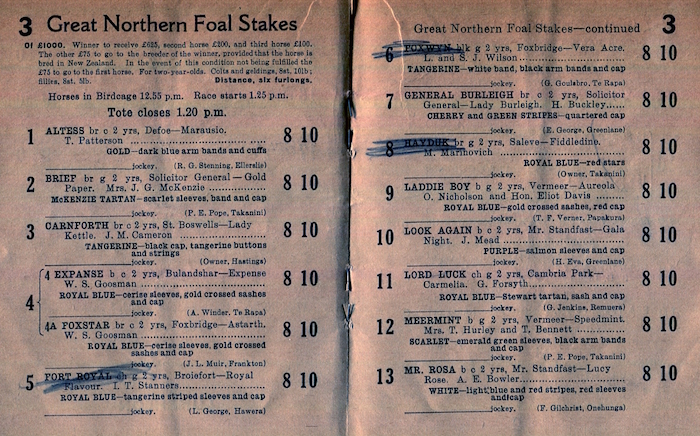 3 Great Northern Foal Stakes
Of £1000. Winner to receive £625, second horse £200, and third horse £100.
The other £75 to go to the breeder of the winner, provided that the horse is
bred in New Zealand. In the event of this condition not being fulfilled the
£75 to go to the first horse. For two-year-olds. Colts and geldings, 8st. 10lb;
fillies, 8st. 5lb. Distance, six furlongs.
Horses in Birdcage 12.55 p.m. Race starts 1.25 p.m.
Tote closes 1.20 p.m.
1 ALTESS br c 2 yrs, Defoe—Marausio.
T. Patterson 8 10
GOLD—dark blue arm bands and cuffs
jockey. (R. G. Stenning, Ellerslie)
2 BRIEF br g 2 yrs, Solicitor General—Gold
Paper. Mrs. J. G. McKenzie 8 10
McKENZIE TARTAN—scarlet sleeves, band and cap
jockey. (P. E. Pope, Takanini)
3 CARNFORTH br c 2 yrs, St. Boswells—Lady
Kettle. J. M. Cameron 8 10
TANGERINE—black cap, tangerine buttons
and strings
jockey. (Owner, Hastings)
4 4 EXPANSE b c 2 yrs, Bulandshar—Expense
W. S. Goosman 8 10
ROYAL BLUE—cerise sleeves, gold crossed sashes
and cap
jockey. (A. Winder, Te Rapa)
4A FOXSTAR br c 2 yrs, Foxbridge—Astarth.
W. S. Goosman 8 10
ROYAL BLUE—cerise sleeves, gold crossed
sashes and cap
jockey. (J. L. Muir, Frankton)
5 FORT ROYAL ch g 2 yrs, Broiefort—Royal
Flavour. I. T. Stanners 8 10
ROYAL BLUE—tangerine striped sleeves and cap
jockey. (L. George, Hawera)
Great Northern Foal Stakes—continued 3
6 FOXWYN blk g 2 yrs, Foxbridge—Vera Acre.
L. and S. J. Wilson 8 10
TANGERINE—white band, black arm bands and cap
jockey. (G. Goulsbro, Te Rapa)
7 GENERAL BURLEIGH br c 2 yrs, Solicitor
General—Lady Burleigh. H. Buckley 8 10
CHERRY and GREEN STRIPES—quartered cap
jockey. (E. George, Greenlane)
8 HAYDUK br g 2 yrs, Saleve—Fiddledine.
M. Marinovich 8 10
ROYAL BLUE—red stars
jockey. (Owner, Takanini)
9 LADDIE BOY b g 2 yrs, Vermeer—Aureola
O. Nicholson and Hon. Eliot Davis 8 10
ROYAL BLUE—gold crossed sashes, red cap
jockey. (T. F. Verner, Papakura)
10 LOOK AGAIN b c 2 yrs, Mr. Standfast—Gala
Night. J. Mead 8 10
PURPLE—salmon sleeves and cap
jockey. (H. Eva, Greenlane)
11 LORD LUCK ch g 2 yrs, Cambria Park—
Carmelia. G. Forsyth 8 10
ROYAL BLUE—Stewart tartan, sash and cap
jockey. (G. Jenkins, Remuera)
12 MEERMINT b g 2 yrs, Vermeer—Speedmint.
Mrs. T. Hurley and T. Bennett 8 10
SCARLET—emerald green sleeves, black arm bands
and cap
jockey. (P. E. Pope, Takanini)
13 MR. ROSA b c 2 yrs, Mr. Standfast—Lucy
Rose. A. E. Bowler 8 10
WHITE—light blue and red stripes, red sleeves
and cap
jockey. (F. Gilchrist, Onehunga)